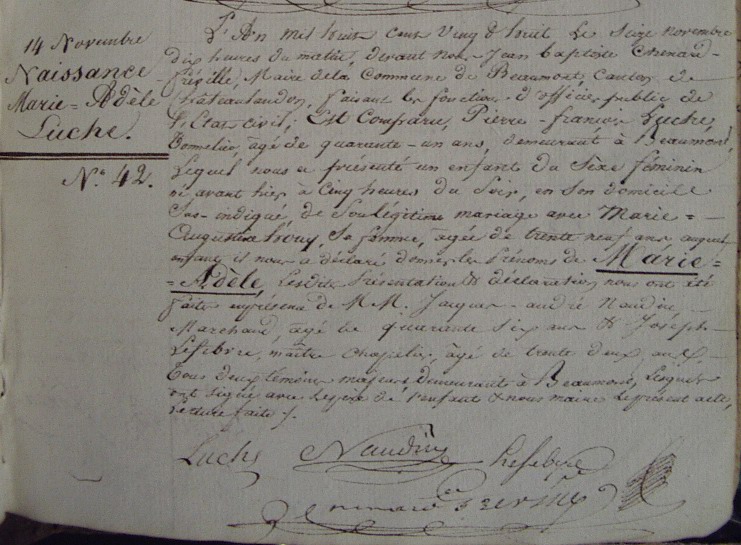 14 Novembre
Naissance
Marie = Adèle
Luche.
N.° 42.
L'An mil huit cent vingt huit le seize novembre
dix heures du matin, devant nous Jean baptiste
Maire de la Commune de Beaumont, Canton de
Châteaulandon, faisant les fonctions d'officier public de
l'Etat civil; Est Comparu, Pierre-françois Luche,
Tonnelier, agé de quarante-un ans, demeurant à Beaumont,
Lequel nous a présenté un enfant du Sexe féminin
né avant hier à Cinq heures du Soir, en Son domicile
Sus-indiqué, de Son légitime mariage avec Marie =
Augustine Sa femme, agée de trente neuf ans, auquel
enfant il nous a déclaré donner les Prénoms de Marie =
= Adèle, Lesdites Présentation & déclaration nous ont été
faites en présence de M.M. Jacques-andré Naudin,
Marchand, agé de quarante Six ans & Joseph
Lefebvre, maître Chapelier, agé de trente deux ans,
Tous deux témoins majeurs demeurants à Beaumont, Lesquels
ont Signé avec le père de l'enfant & nous maire le présent acte,
lecture faite.
Luche Naudin Lefebvre